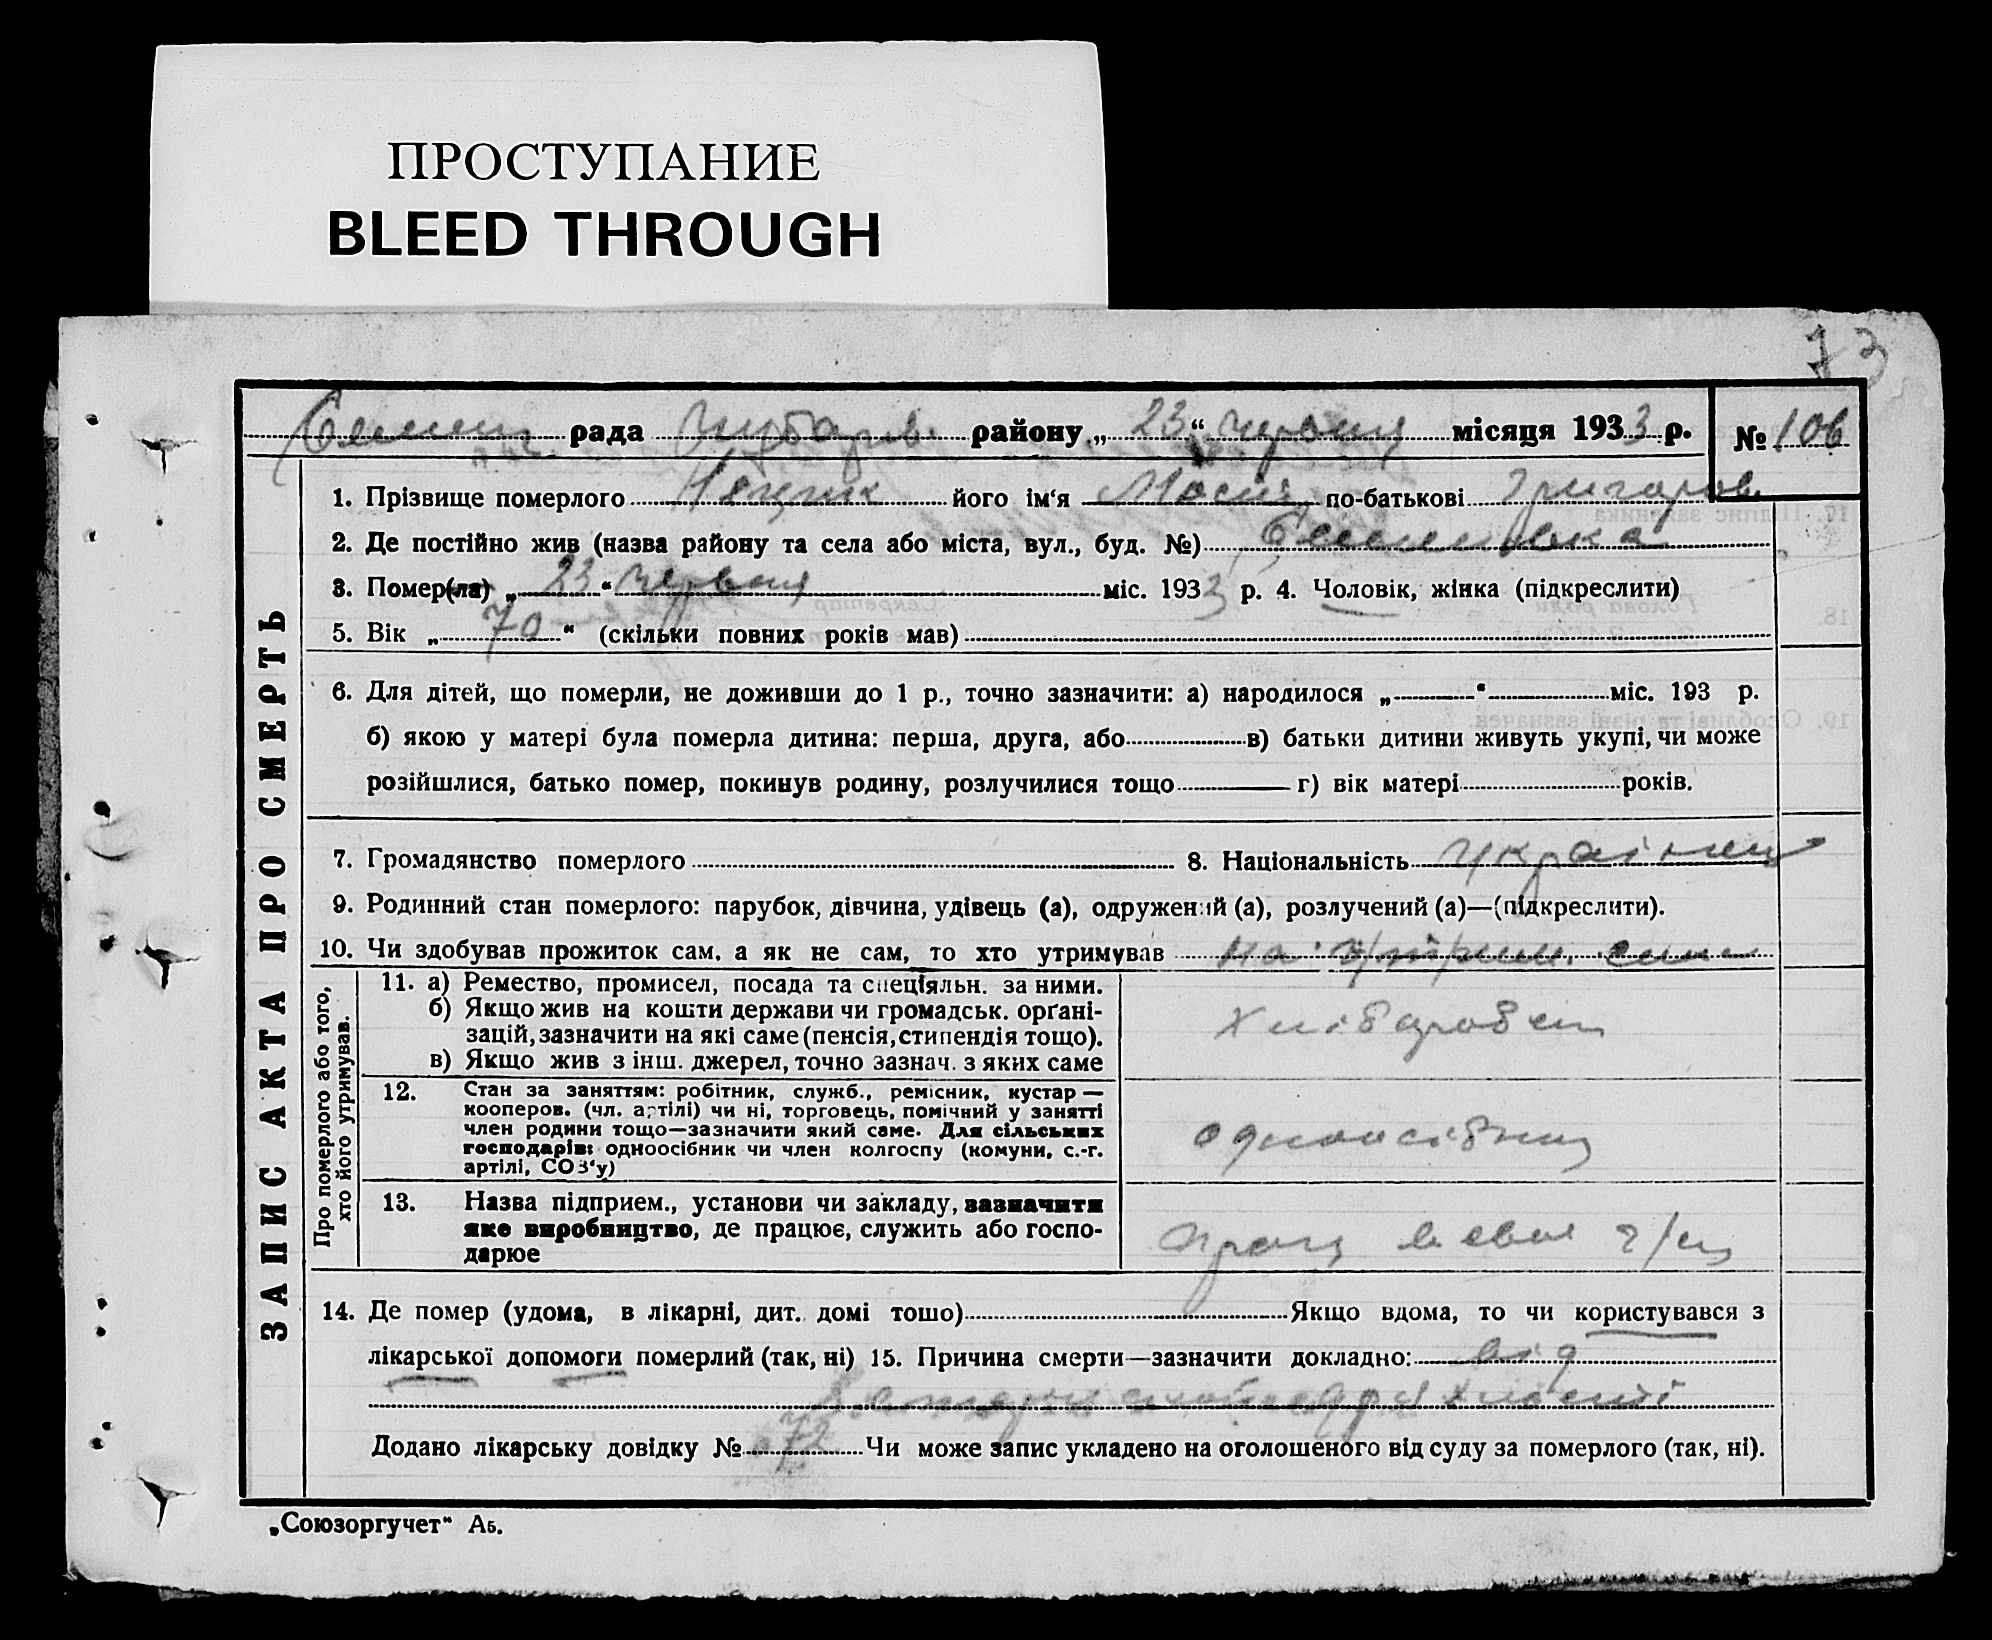 ПРОСТУПАНИЕ
BLEED THROUGH
73
рада району „ 23 “ червня місяця 1933 р. № 106
ЗАПИС АКТА ПРО СМЕРТЬ
1. Прізвище померлого його ім‘я по-батькові Григоров.
2. Де постійно жив (назва району та села або міста, вул., буд. №)
3. Помер(ла) „ 23 “ червня міс. 1933 р. 4. Чоловік, жінка (підкреслити)
5. Вік „ 70 “ (скільки повних років мав)
6. Для дітей, що померли, не доживши до 1 р., точно зазначити: а) народилося „ “ міс. 193 р.
б) якою у матері була померла дитина: перша, друга, або в) батьки дитини живуть укупі, чи може
розійшлися, батько помер, покинув родину, розлучилися тощо г) вік матері років.
7. Громадянство померлого 8. Національність українец
9. Родинний стан померлого: парубок, дівчина, удівець (а), одружений (а), розлучений (а)—(підкреслити).
10. Чи здобував прожиток сам, а як не сам, то хто утримував на утрим. сина
Про померлого або того, хто його утримував.
11. а) Ремество, промисел, посада та спеціяльн. за ними.
б) Якщо жив на кошти держави чи громадськ. орґані-
зацій, зазначити на які саме (пенсія, стипендія тощо).
в) Якщо жив з інш. джерел, точно зазнач. з яких саме
хлібороб
12. Стан за заняттям: робітник, служб., ремісник, кустар —
кооперов. (чл. артілі) чи ні, торговець, помічний у занятті
член родини тощо—зазначити який саме. Для сільських
господарів: одноосібник чи член колгоспу (комуни, с.-г.
артілі, СОЗ‘у)
одноосібник
13. Назва підприєм., установи чи закладу, зазначити
яке виробництво, де працює, служить або госпо-
дарює
14. Де помер (удома, в лікарні, дит. домі тощо) Якщо вдома, то чи користувався з
лікарської допомоги померлий (так, ні) 15. Причина смерти—зазначити докладно: від
Додано лікарську довідку № Чи може запис укладено на оголошеного від суду за померлого (так, ні).
„Союзоргучет“ А5.